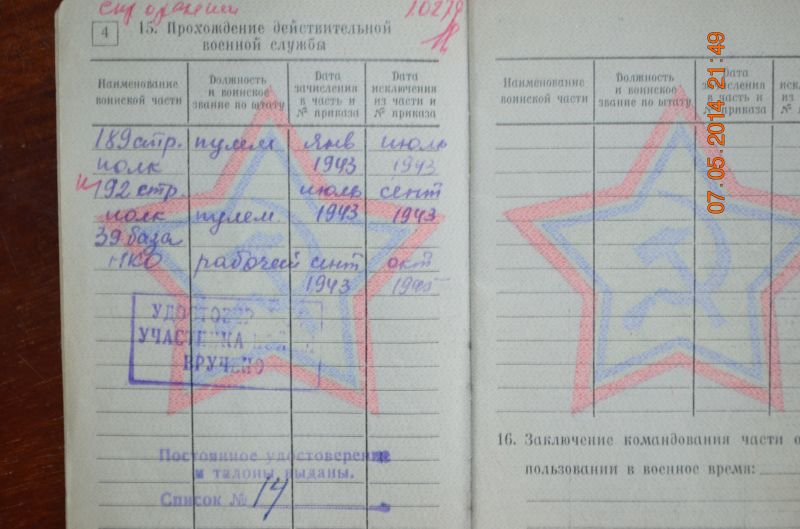 4
15. Прохождение действительной
военной службы
Наименование воинской части
Должность и воинское звание по штату
Дата зачисления в часть и № приказа
Дата исключения из части и № приказа
189 стр. пулем янв июль
полк 1943 1943
192 стр. июль сент
полк пулем 1943 1943
39 база
НКО рабочей сент окт
1943 1945
УДОСТОВЕР
УЧАСТНИКА ВОЙНЫ
ВРУЧЕНО
Постоянное удостоверение
и талоны выданы.
Список № 14
Наименование воинской части
Должность и воинское звание по штату
Дата зачисления в часть и № приказа
16. Заключение командования части о
пользовании в военное время:
07.05.2014 21:49